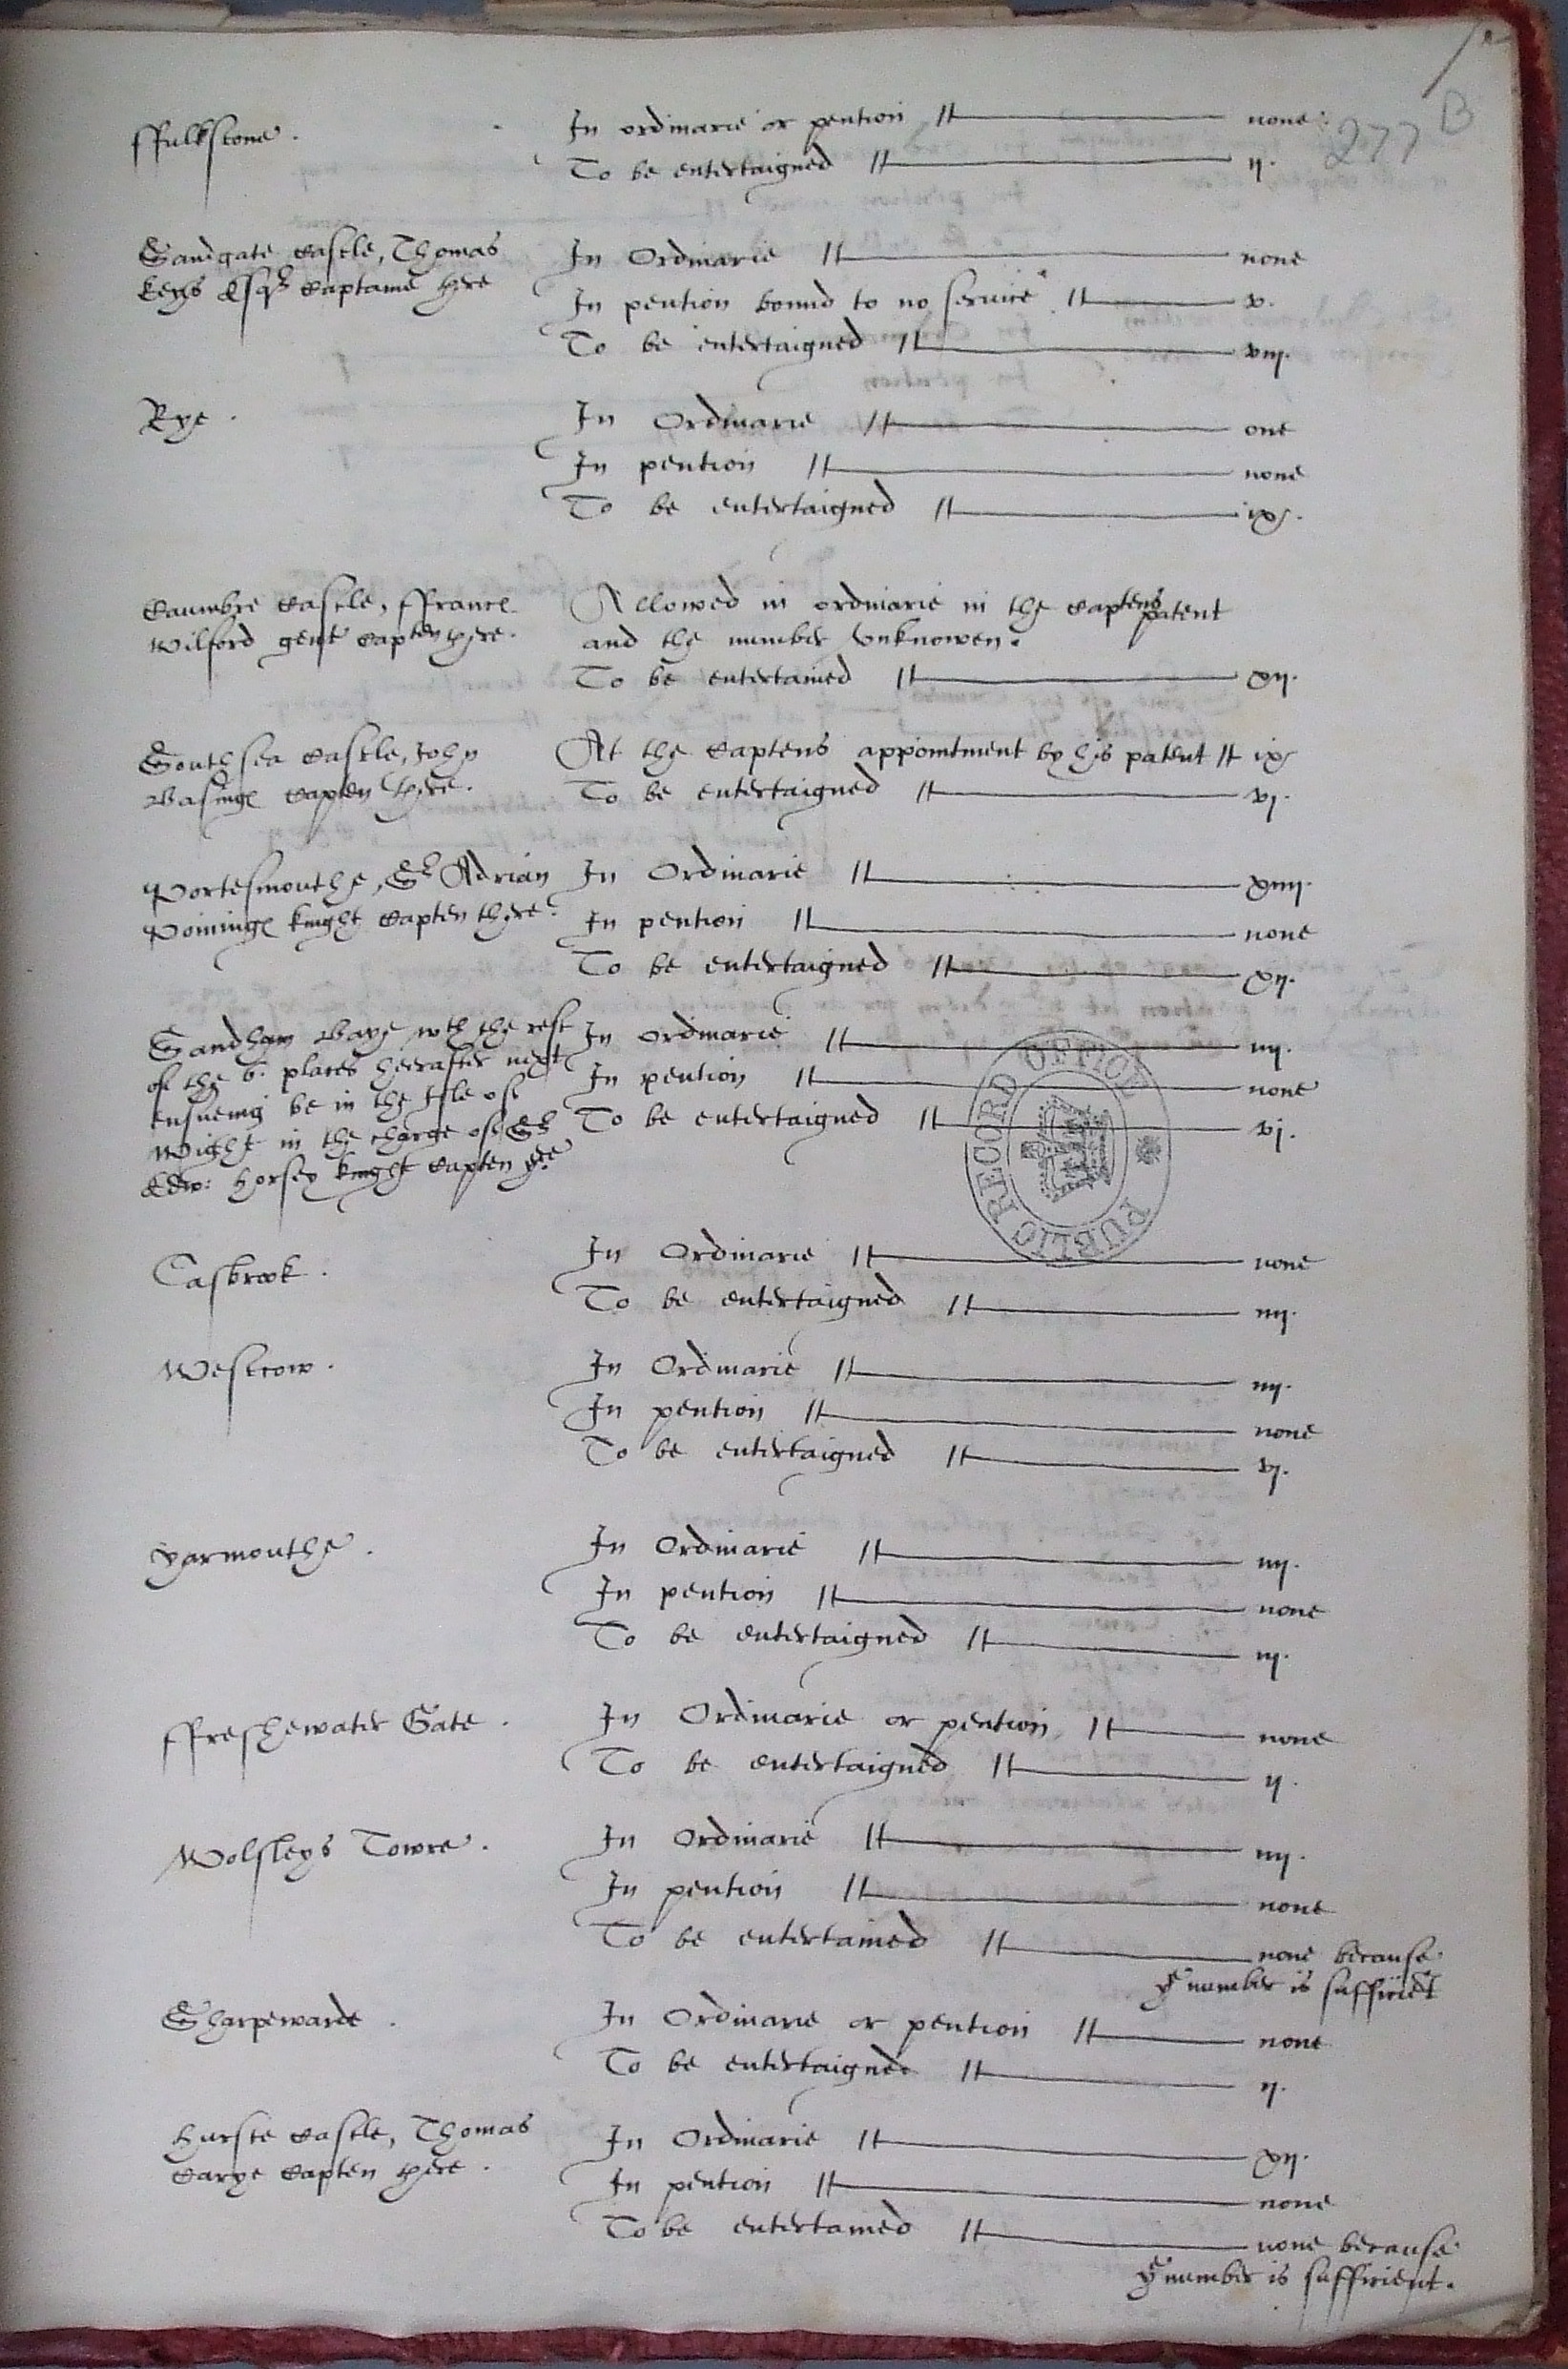 277 B
ffulkstone .
In ordinarie or pention // none .
To be entertaigned // ij.
Sandgate Castle, Thomas
Keys Esqr Captaine there
In Ordinarie // none
In pention bound to no service // v.
To be entertaigned // viij.
Rye .
In Ordinarie // one
In pention // none
To be entertaigned // ix.
Caumbre Castle, ffrance
Wilford gent Capten there .
Allowed in ordinarie in the Captens patent
and the number vnknowen .
To be entertained // xij.
Southsea Castle, John
Basing Capten there .
At the Captens appointment by his patent // ix
To be entertaigned // vj.
Portesmouthe, Sr Adrian
Poininge knight Capten there .
In Ordinarie // xiiij.
In pention // none
To be entertaigned // xij.
Sandham Baye wth the rest
of the 6. places herafter next
ensueing be in the Isle of
Wight in the charge of Sr
Edw: Horsey knight Capten there
In ordinarie // iiij.
In pention // none
To be entertaigned // vj.
PUBLIC RECORD OFFICE
Casbrook .
In Ordinarie // none
To be entertaigned // iiij.
Westcow .
In Ordinarie // iiij.
In pention // none
To be entertaigned // vj.
Yarmouthe .
In Ordinarie // iiij.
In pention // none
To be entertaigned // iij.
ffreshewater Gate .
In Ordinarie or pention // none
To be entertaigned // ij .
Wolsleys Towre .
In Ordinarie // iiij .
In pention // none
To be entertained // none because
ye number is sufficiet
Sharpewarde .
In Ordinarie or pention // none
To be entertaigned // ij.
Hurste Castle, Thomas
Carye Capten there .
In Ordinarie // xij.
In pention // none
To be entertained // none because
ye number is sufficient .